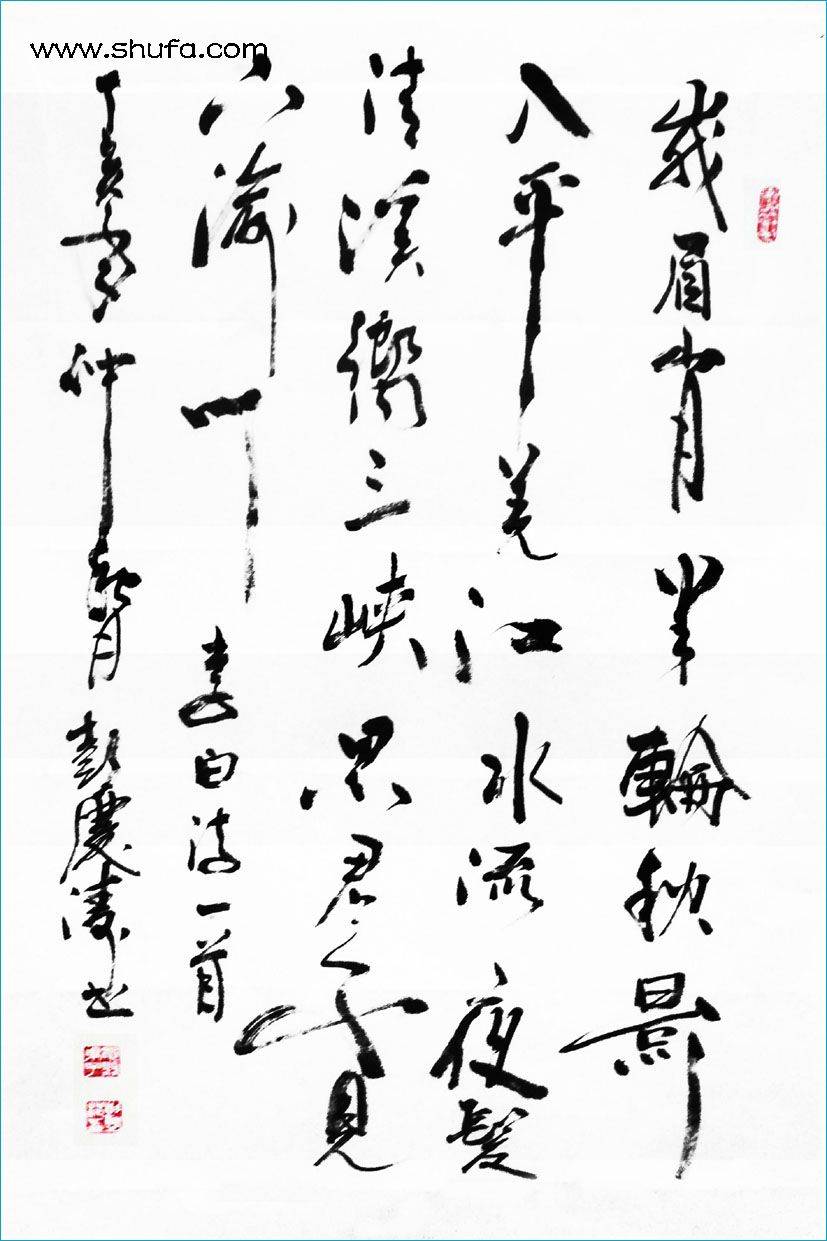 www.shufa.com
峩眉山月半輪秋影
入平羌江水流夜發
清溪嚮三峽思君不見
下渝州 李白詩一首
丁亥年仲月彭慶濤書